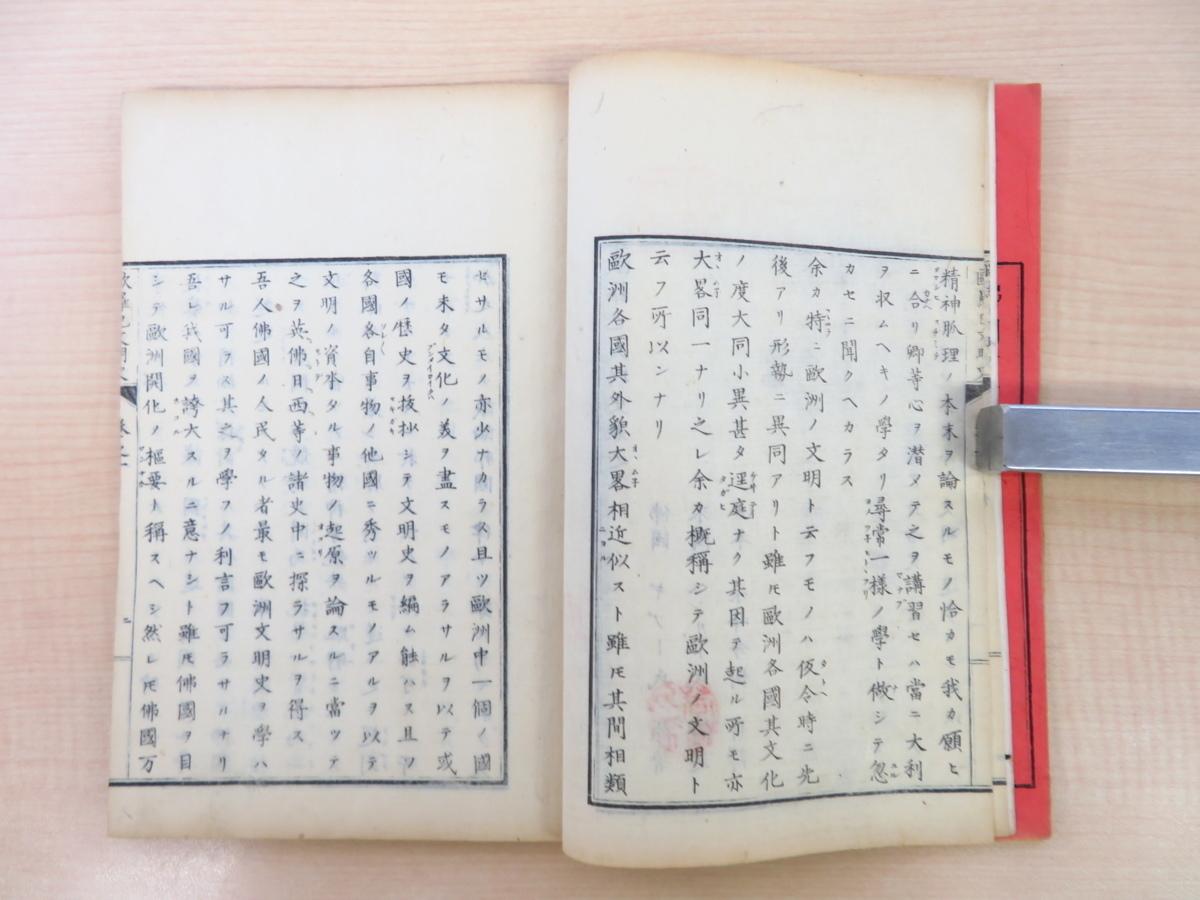 精神脈理ノ本末ヲ論スルモノ恰カモ我カ願ヒ
ニ合リ卿等心ヲ潜メテ之ヲ講習セハ當ニ大利
ヲ収ムヘキノ學タリ尋常一樣ノ學ト做シテ忽
カセニ聞クヘカラス
余カ特ニ歐洲ノ文明ト云フモノハ仮令時ニ先
後アリ形勢ニ異同アリト雖モ歐洲各國其文化
ノ度大同小異甚タ逕庭ナク其因テ起ル所モ亦
大畧同一ナリ之レ余カ概稱シテ歐洲ノ文明ト
云フ所以ンナリ
歐洲各國其外貌大畧相近似スト雖モ其間相類
セサルモノ亦少ナカラス且ツ歐洲中一個ノ國
モ未タ文化ノ美ヲ盡スモノアラサルヲ以テ或
國ノ歴史ヲ抜抄シテ文明史ヲ編ム能ハス且ツ
各國各自事物ノ他國ニ秀ツルモノアルヲ以テ
文明ノ資本タル事物ノ起原ヲ論スルニ當ツテ
之ヲ英佛日西等ノ諸史中ニ探ラサルヲ得ス
吾人佛國ノ人民タル者最モ歐洲文明史ヲ學ハ
サル可ラス其之ヲ學フノ利言フ可ラサルナリ
吾レ我國ヲ誇大スルニ意ナシト雖モ佛國ヲ目
シテ歐洲開化ノ樞要ト稱スヘシ然レモ佛國万